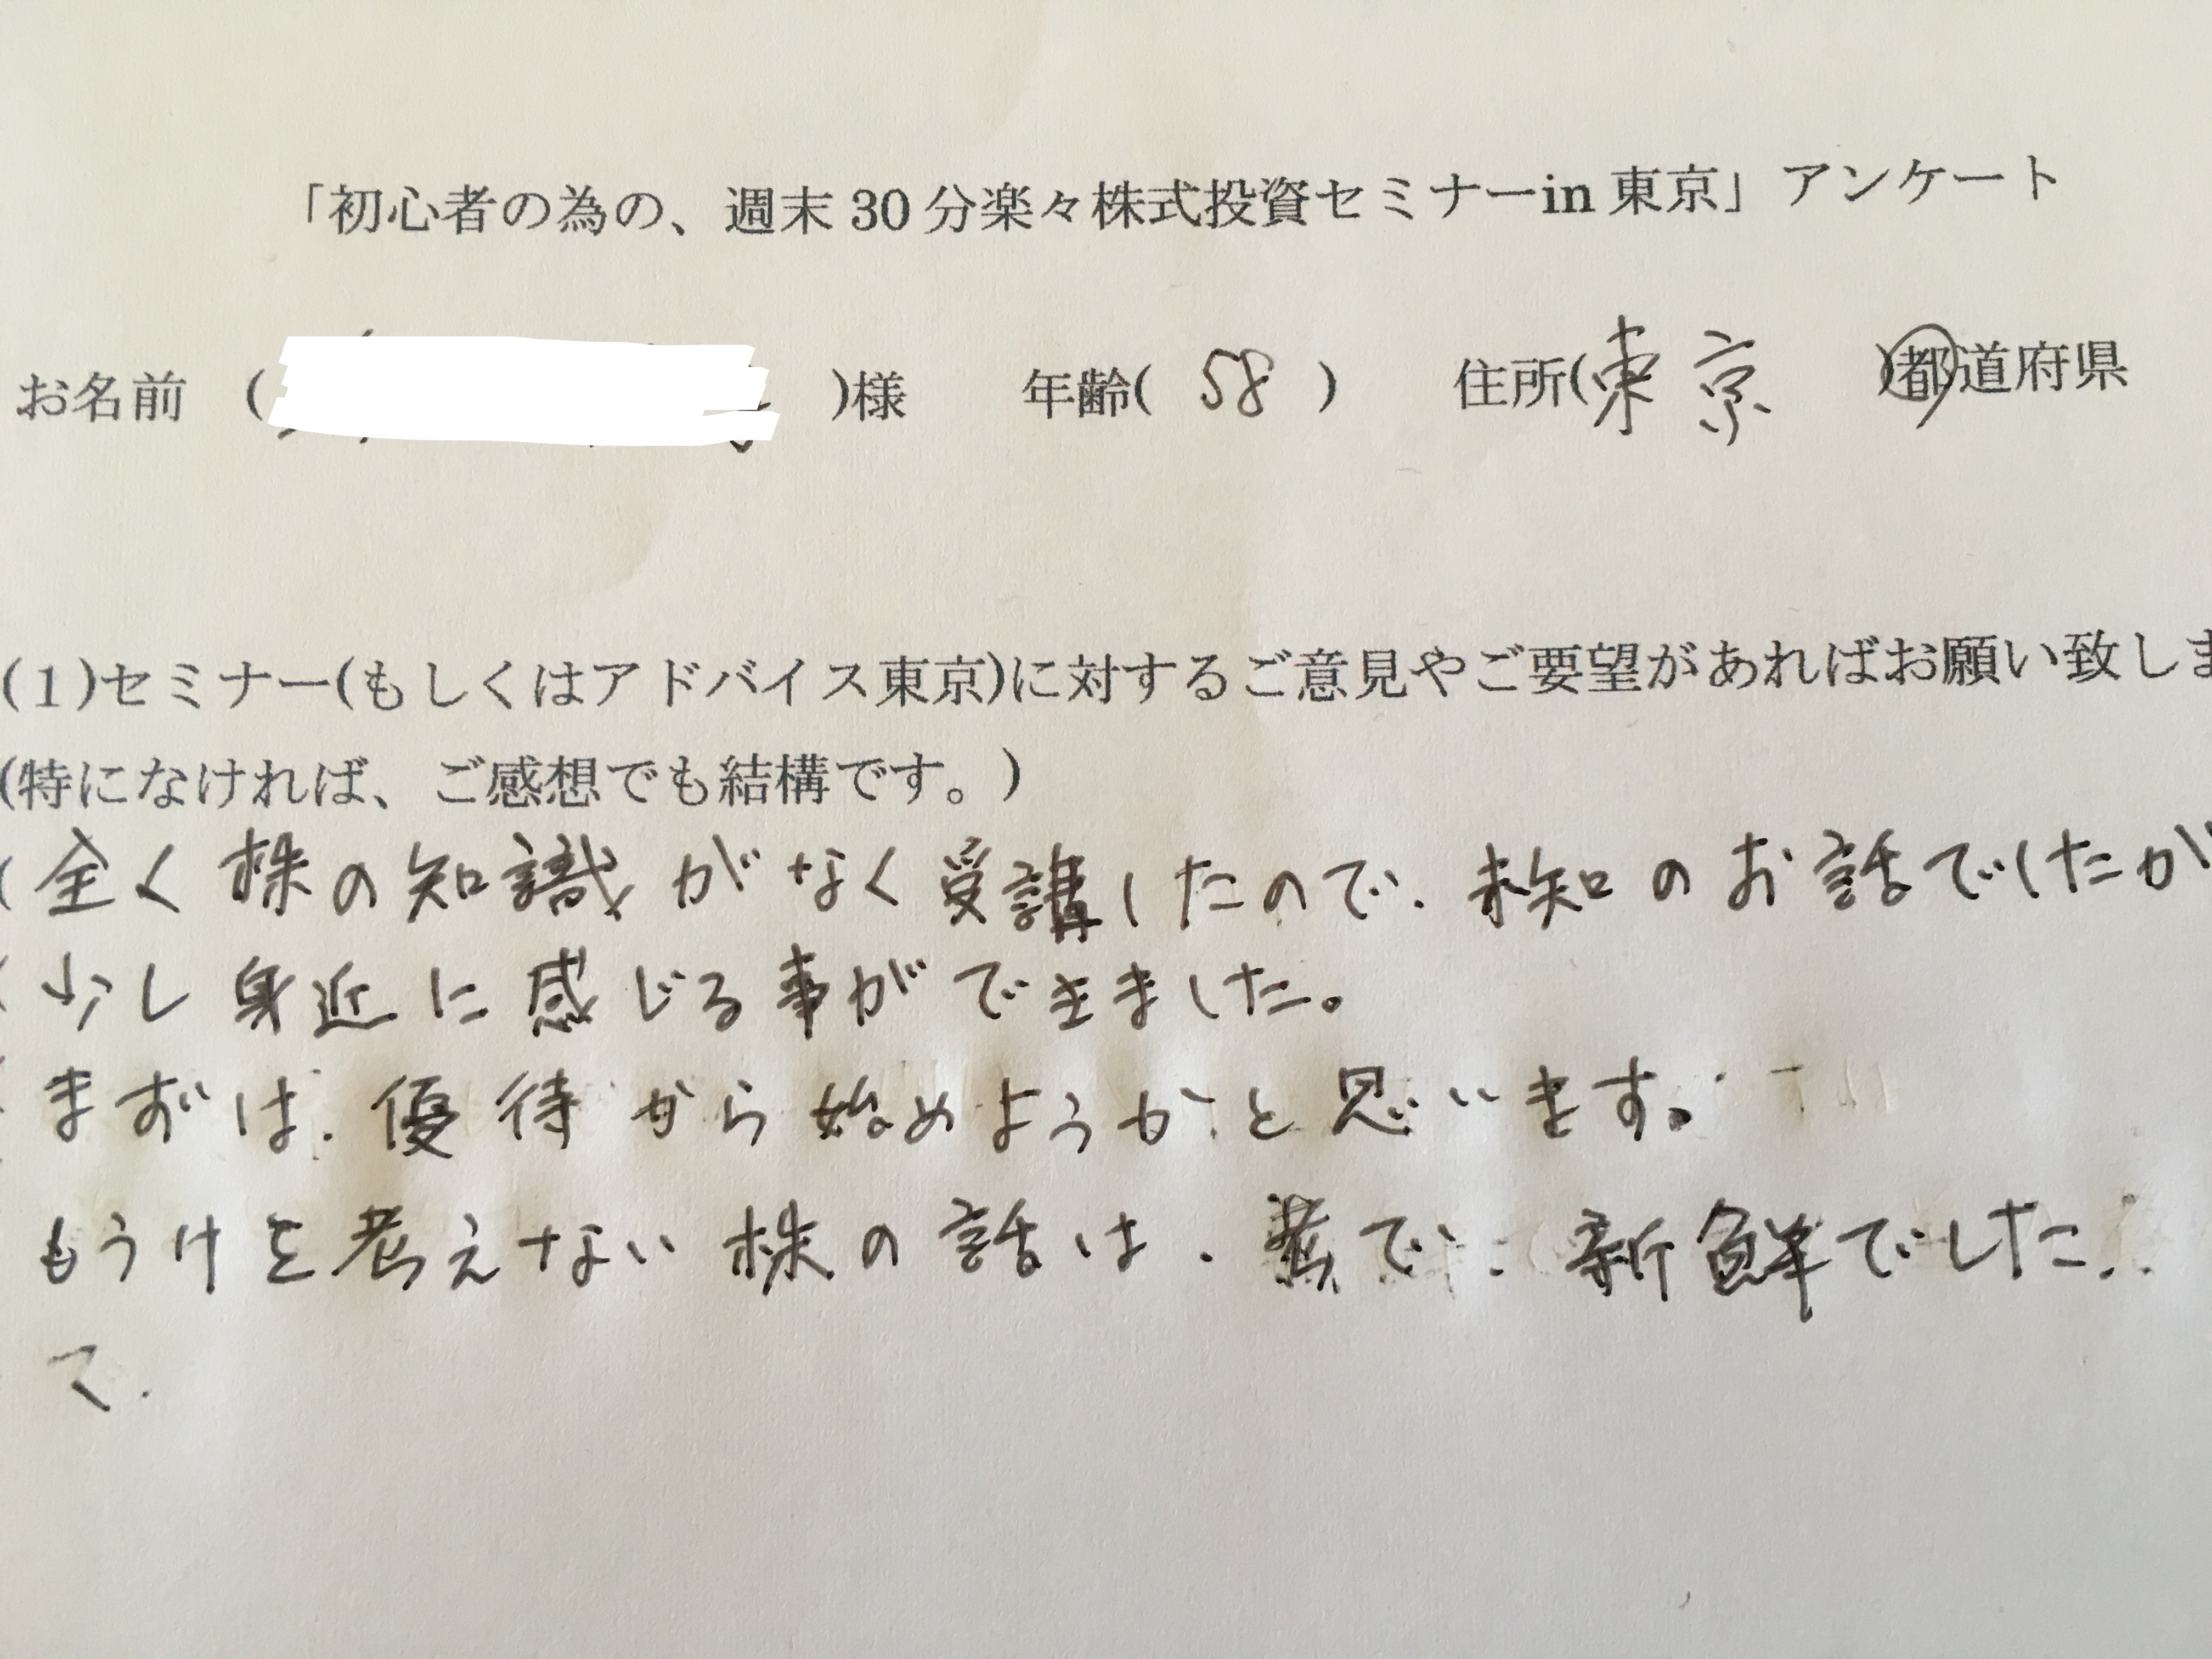 「初心者の為の、週末 30 分楽々株式投資セミナーin 東京」アンケート
お名前 ( )様 年齢( 58 ) 住所(東京 )都道府県
(1)セミナー(もしくはアドバイス東京)に対するご意見やご要望があればお願い致しま
(特になければ、ご感想でも結構です。)
全く株の知識がなく受講したので、未知のお話でしたが
少し身近に感じる事ができました。
まずは、優待から始めようかと思います。
もうけを考えない株の話は、 で 新鮮でした
て.